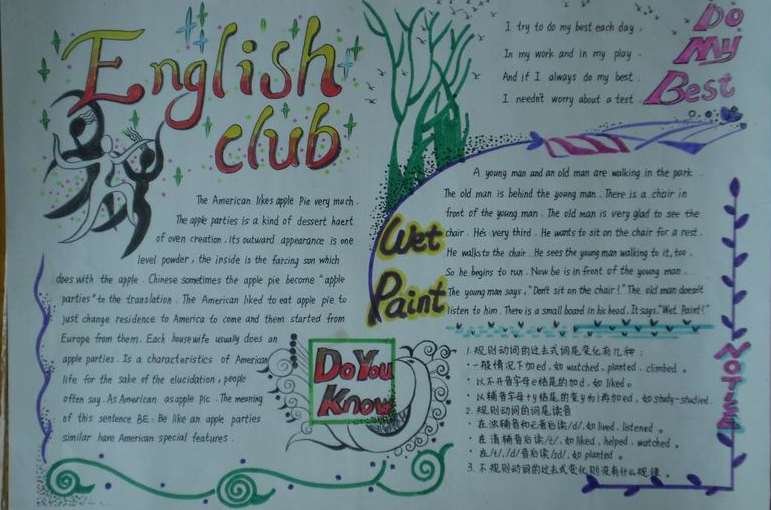 English
club
The American likes apple Pie very much.
The apple parties is a kind of dessert haert
of oven creation, its outward appearance is one
level powder, the inside is the farcing son which
does with the apple. Chinese sometimes the apple pie become "apple
parties" to the translation. The American liked to eat apple pie to
just change residence to America to come and them started from
Europe from them. Each housewife usually does an
apple parties. Is a characteristics of American
life for the sake of the elucidation, people
often say. As American as apple pic. The meaning
of this sentence BE: Be like an apple parties
similar have American special features.
Do You
Know
Do
My
Best
I try to do my best each day.
In my work and in my play.
And if I always do my best.
I needn't worry about a test.
Wet
Paint
A young man and an old man are walking in the park.
The old man is behind the young man. There is a chair in
front of the young man. The old man is very glad to see the
chair. He's very third. He wants to sit on the chair for a rest.
He walks to the chair. He sees the young man walking to it, too.
So he begins to run. Now be is in front of the young man.
The young man says, "Don't sit on the chair!" The old man doesn't
listen to him. There is a small board in his head. It says."Wet Paint!"
1. 规则动词的过去式词尾变化有几种:
· 一般情况下加ed, 如 watched, planted, climbed。
· 以不发音字母e结尾的加d, 如 liked。
· 以辅音字母+y结尾的变y为i再加ed, 如 study-studied
2. 规则动词的词尾读音
· 在浊辅音和元音后读/d/, 如 lived, listened。
· 在清辅音后读/t/, 如 liked, helped, watched。
· 在/t/, /d/音后读/id/, 如 planted。
3. 不规则动词的过去式变化则没有什么规律。